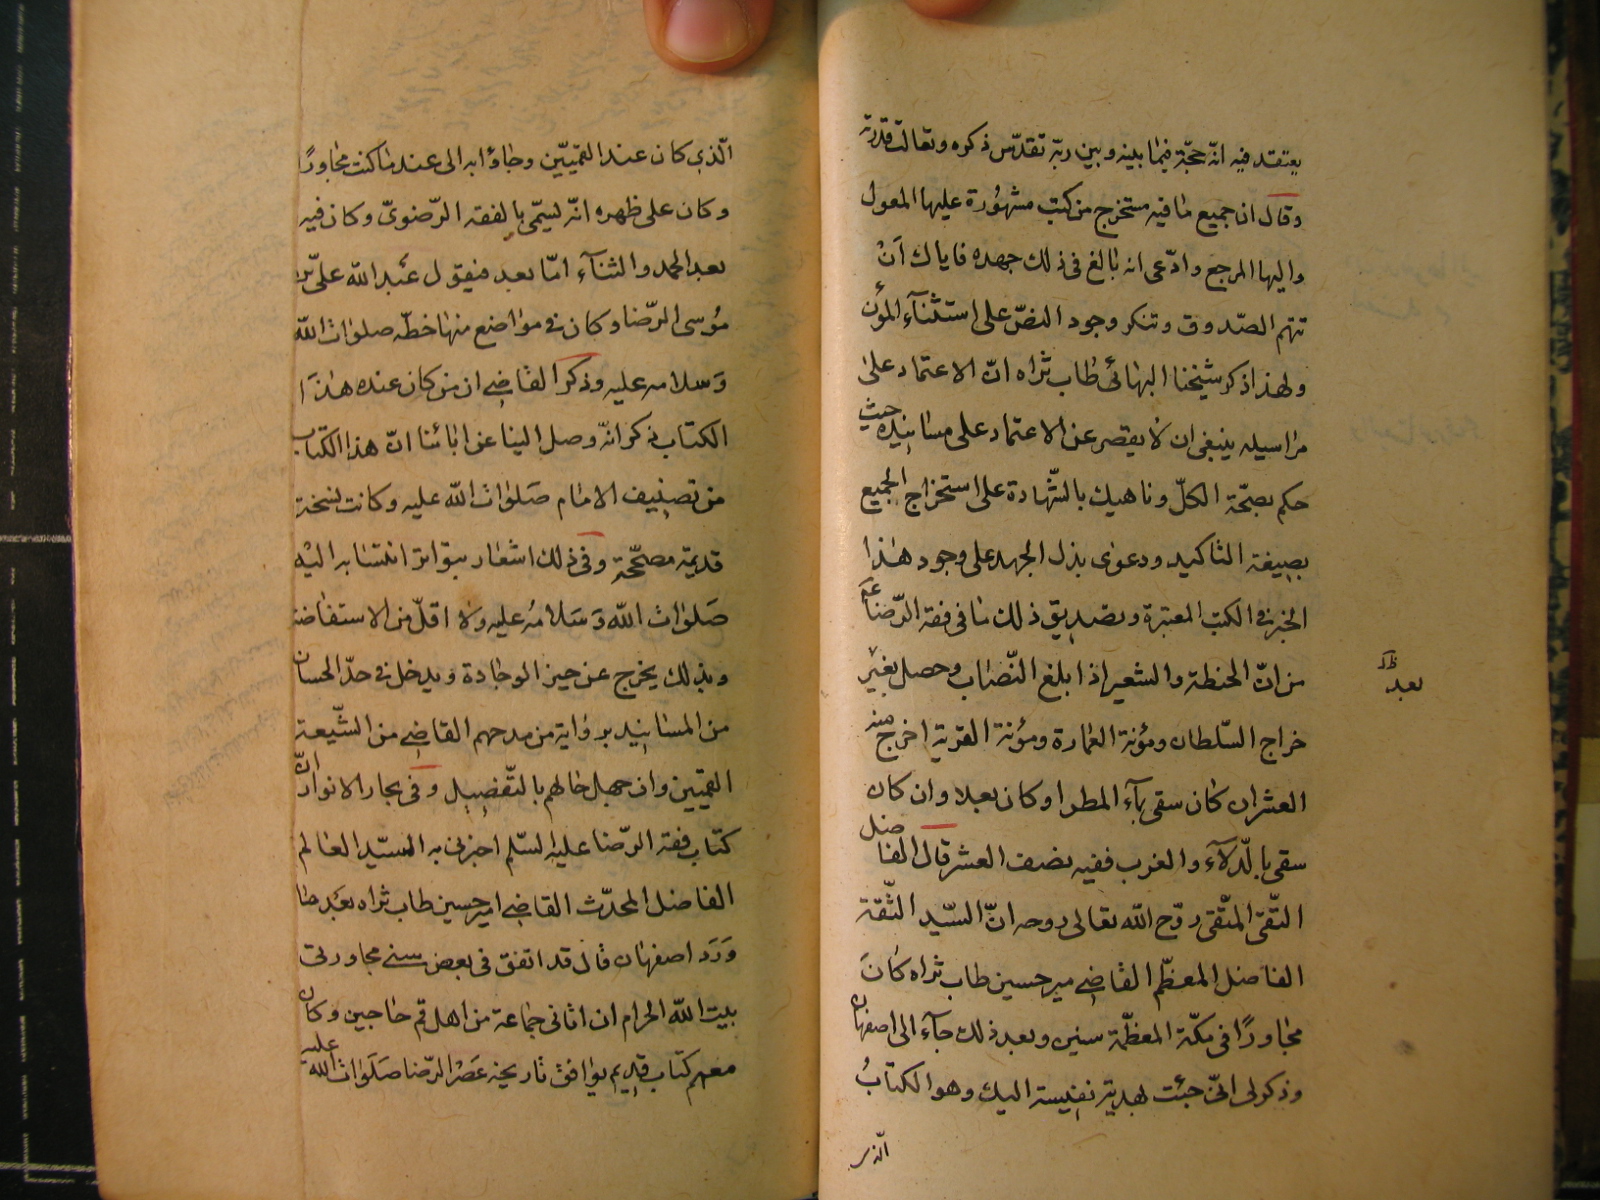 يعتقد فيه انّه حجّة فيما بينه وبين ربّه تقدّس ذكره وتعالت قدرته
وقال ان جميع ما فيه مستخرج من كتب مشهورة عليها المعول
واليها المرجع وادّعى انه بالغ في ذلك جهده فاياك اَنْ
تتهم الصّدوق وتنكر وجود النصّ على استثنآء المؤن
ولهذا ذكر شيخنا البهائى طاب ثراه انّ الاعتماد على
مراسيله ينبغى ان لا يقصر عن الاعتماد على مسانيده حيث
حكم بصحّة الكلّ وناهيك بالشّهادة على استخراج الجميع
بصيغة التاكيد ودعوى بذل الجهد على وجود هذا
الخبر فى الكتب المعتبرة وبصديق ذلك ما فى فقه الرّضا عم
من انّ الحنطة والشعير اذا بلغ النّصاب وحصل بغير
بعد ظ
خراج السّلطان ومؤنة العمارة ومؤنة القرية اخرج منه
العشر ان كان سقى بمآء المطر او كان بعلا وان كان
سقى بالّدلآء والغرب ففيه نصف العشر قال الفاضل
التّقىّ المتّقى روّح الله تعالى روحه انّ السّيد الثّقة
الفاضل المعظّم القاضى مير حسين طاب ثراه كانَ
مجاورًا فى مكّة المعظّمة سنين وبعد ذلك جآء الى اصفهان
وذكر لى انّى جئت بهدية نفيسة اليك وهو الكتابُ
الّذى
الّذى كان عند القميّين وجاؤا به الى عند ما كنت مجاورًا
وكان على ظهره انّه يسمّى بالفقه الرّضوىّ وكان فيه
بعد الحمد والثنآء امّا بعد فيقول عَبد الله علىّ بن
مُوسى الرّضا وكان فى مواضع منها خطّه صلوات الله
وَسلامه عليه وذكر القاضى ان من كان عنده هذَا
الكتاب ذكر انّه وصل الينا عن ابائنا انّ هذا الكتاب
من تصنيف الامام صَلوات الله عليه وكانت نسخة
قديمة مصحّحة وفى ذلك اشعار بتواتر انتسابه اليْه
صَلوات الله وَسَلامُه عليه ولا اقلّ من الاستفاضة
وبذلك يخرج عن حيز الوجادة ويدخل فى حدّ الحسان
من المسانيد برواية من مدحهم القاضى من الشّيعة
القميين وان جهل حالهم بالتّفصيل وفى بحار الانوار انّ
كتاب فقه الرّضا عليه السّلم اخبرنى به السّيد العالم
الفاضل المحدّث القاضى امير حسين طاب ثراه بعَد ما
وَرَد اصفهان قال قد اتفق فى بعض سنى مجاورتى
بيت الله الحرام ان اتانى جماعة من اهل قم حاجين وكان
معهم كتاب قديم يوافق تاريخه عَصْر الرّضا صَلَوات الله عليه